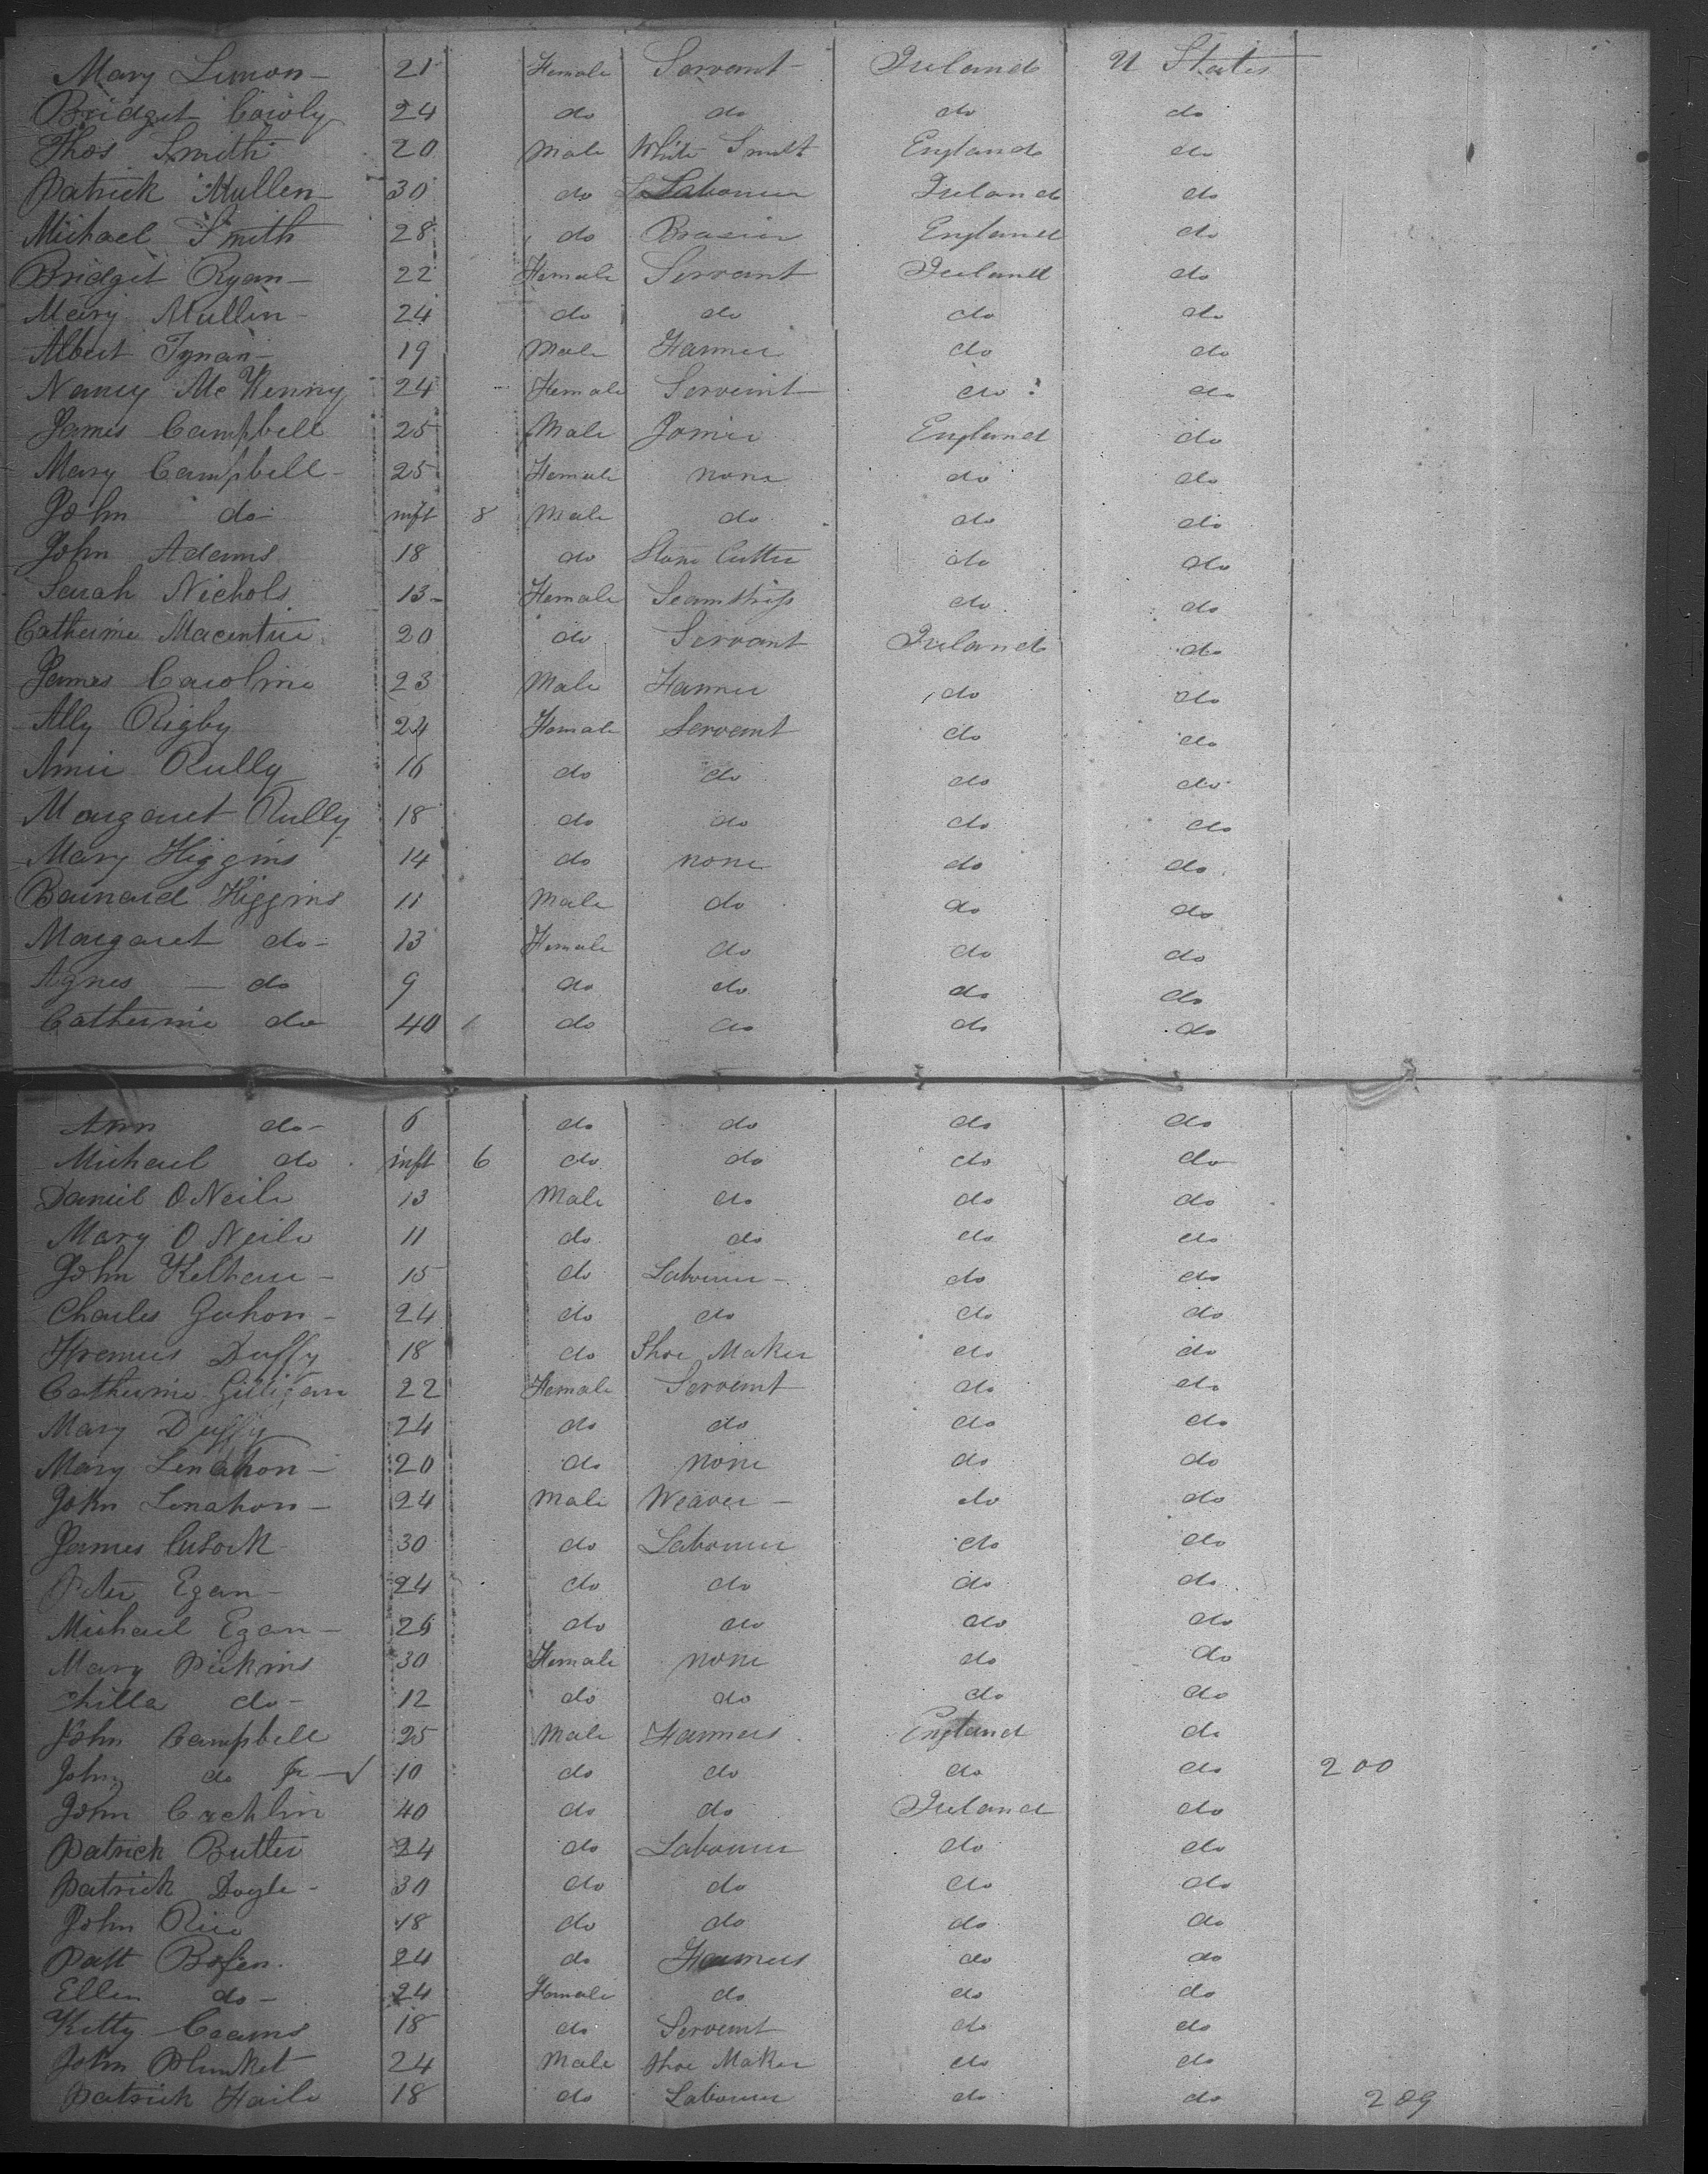 Mary Limon - 21 Female Servant Ireland U States
Bridget Cowly 24 do do do do
Thos Smith 20 Male White Smith England do
Patrick Mullen - 30 do Labourer Ireland do
Michael Smith 28 do Brasier England do
Bridget Ryan - 22 Female Servant Ireland do
Mary Mullin - 24 do do do do
Albert Tynan - 19 Male Farmer do do
Nancy McKenny 24 Female Servant do do
James Campbell 25 Male Joiner England do
Mary Campbell - 25 Female none do do
John do inft 8 Male do do do
John Adams 18 do Stone Cutter do do
Sarah Nichols 13 - Female Seamstress do do
Catherine Macentire 20 do Servant Ireland do
James Caroline 23 Male Farmer do do
Ally Rigby 24 Female Servant do do
Rully 16 do do do do
Margaret Rully 18 do do do do
Mary Higgins 14 do none do do
Barnard Higgins 11 Male do do do
Margaret do - 13 Female do do do
Agnes - do 9 do do do do
Catherine do 40 do do do do
Ann do - 6 do do do do
Michael do inft 6 do do do do
Daniel O Neile 13 Male do do do
Mary O Neile 11 do do do do
John - 15 do Labourer - do do
Charles - 24 do do do do
Duffy 18 do Shoe Maker do do
Catherine Gilligan 22 Female Servant do do
Mary Duffy 24 do do do do
Mary Lenahon - 20 do none do do
John Lenahon - 24 Male Weaver - do do
James Cusack 30 do Labourer do do
Peter Egan - 24 do do do do
Michael Egan - 26 do do do do
Mary Pickins 30 Female none do do
do - 12 do do do do
John Campbell 25 Male Farmers England do
John do Jr - 10 do do do do 200
John Cachlin 40 do do Ireland do
Patrick Butler 24 do Labourer do do
Patrick Doyle - 30 do do do do
John Rice 18 do do do do
Patt 24 do Farmers do do
Ellen do - 24 Female do do do
Kitty 18 do Servant do do
John Plunket 24 Male Shoe Maker do do
Patrick Haile 18 do Labourer do do 209